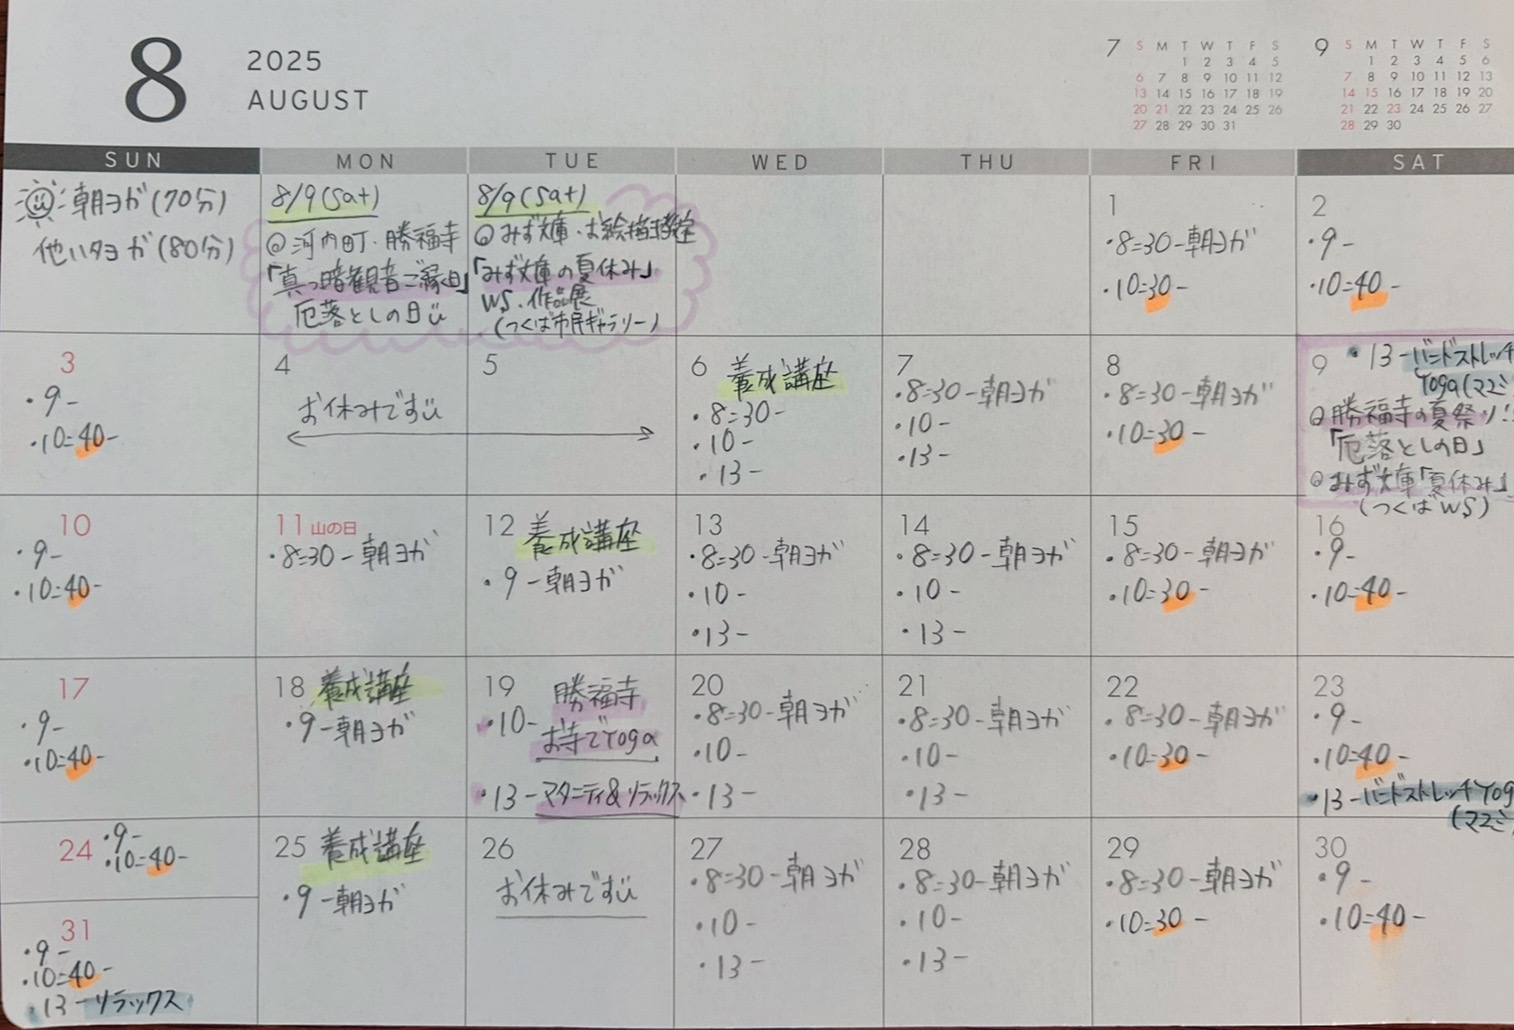 8
2025
AUGUST
7
S M T W T F S
1 2 3 4 5
6 7 8 9 10 11 12
13 14 15 16 17 18 19
20 21 22 23 24 25 26
27 28 29 30 31
9
S M T W T F S
1 2 3 4 5 6
7 8 9 10 11 12 13
14 15 16 17 18 19 20
21 22 23 24 25 26 27
28 29 30
SUN MON TUE WED THU FRI SAT
朝ヨガ(70分)
他ハタヨガ(80分)
8/9(Sat)
◎河内町・勝福寺
「真っ暗観音ご縁日」
厄落としの日
8/9(Sat)
◎みず文庫・お絵描き教室
「みず文庫の夏休み」
WS・作品展
(つくば市民ギャラリー)
1
・8:30-朝ヨガ
・10:30-
2
・9-
・10:40-
3
・9-
・10:40-
4
お休みです
5
6 養成講座
・8:30-
・10-
・13-
7
・8:30-朝ヨガ
・10-
・13-
8
・8:30-朝ヨガ
・10:30-
9 ・13-バンドストレッチ
Yoga(ママミ
◎勝福寺の夏祭り!!
「厄落としの日」
◎みず文庫「夏休み」
(つくばWS)
10
・9-
・10:40-
11 山の日
・8:30-朝ヨガ
12 養成講座
・9-朝ヨガ
13
・8:30-朝ヨガ
・10-
・13-
14
・8:30-朝ヨガ
・10-
・13-
15
・8:30-朝ヨガ
・10:30-
16
・9-
・10:40-
17
・9-
・10:40-
18 養成講座
・9-朝ヨガ
19 勝福寺
・10-お寺でYoga
・13-マタニティ&リラックス
20
・8:30-朝ヨガ
・10-
・13-
21
・8:30-朝ヨガ
・10-
・13-
22
・8:30-朝ヨガ
・10:30-
23
・9-
・10:40-
・13-バンドストレッチYog
(ママミ
24 ・9-
・10:40-
25 養成講座
・9-朝ヨガ
26
お休みです
27
・8:30-朝ヨガ
・10-
・13-
28
・8:30-朝ヨガ
・10-
・13-
29
・8:30-朝ヨガ
・10:30-
30
・9-
・10:40-
31
・9-
・10:40-
・13-リラックス